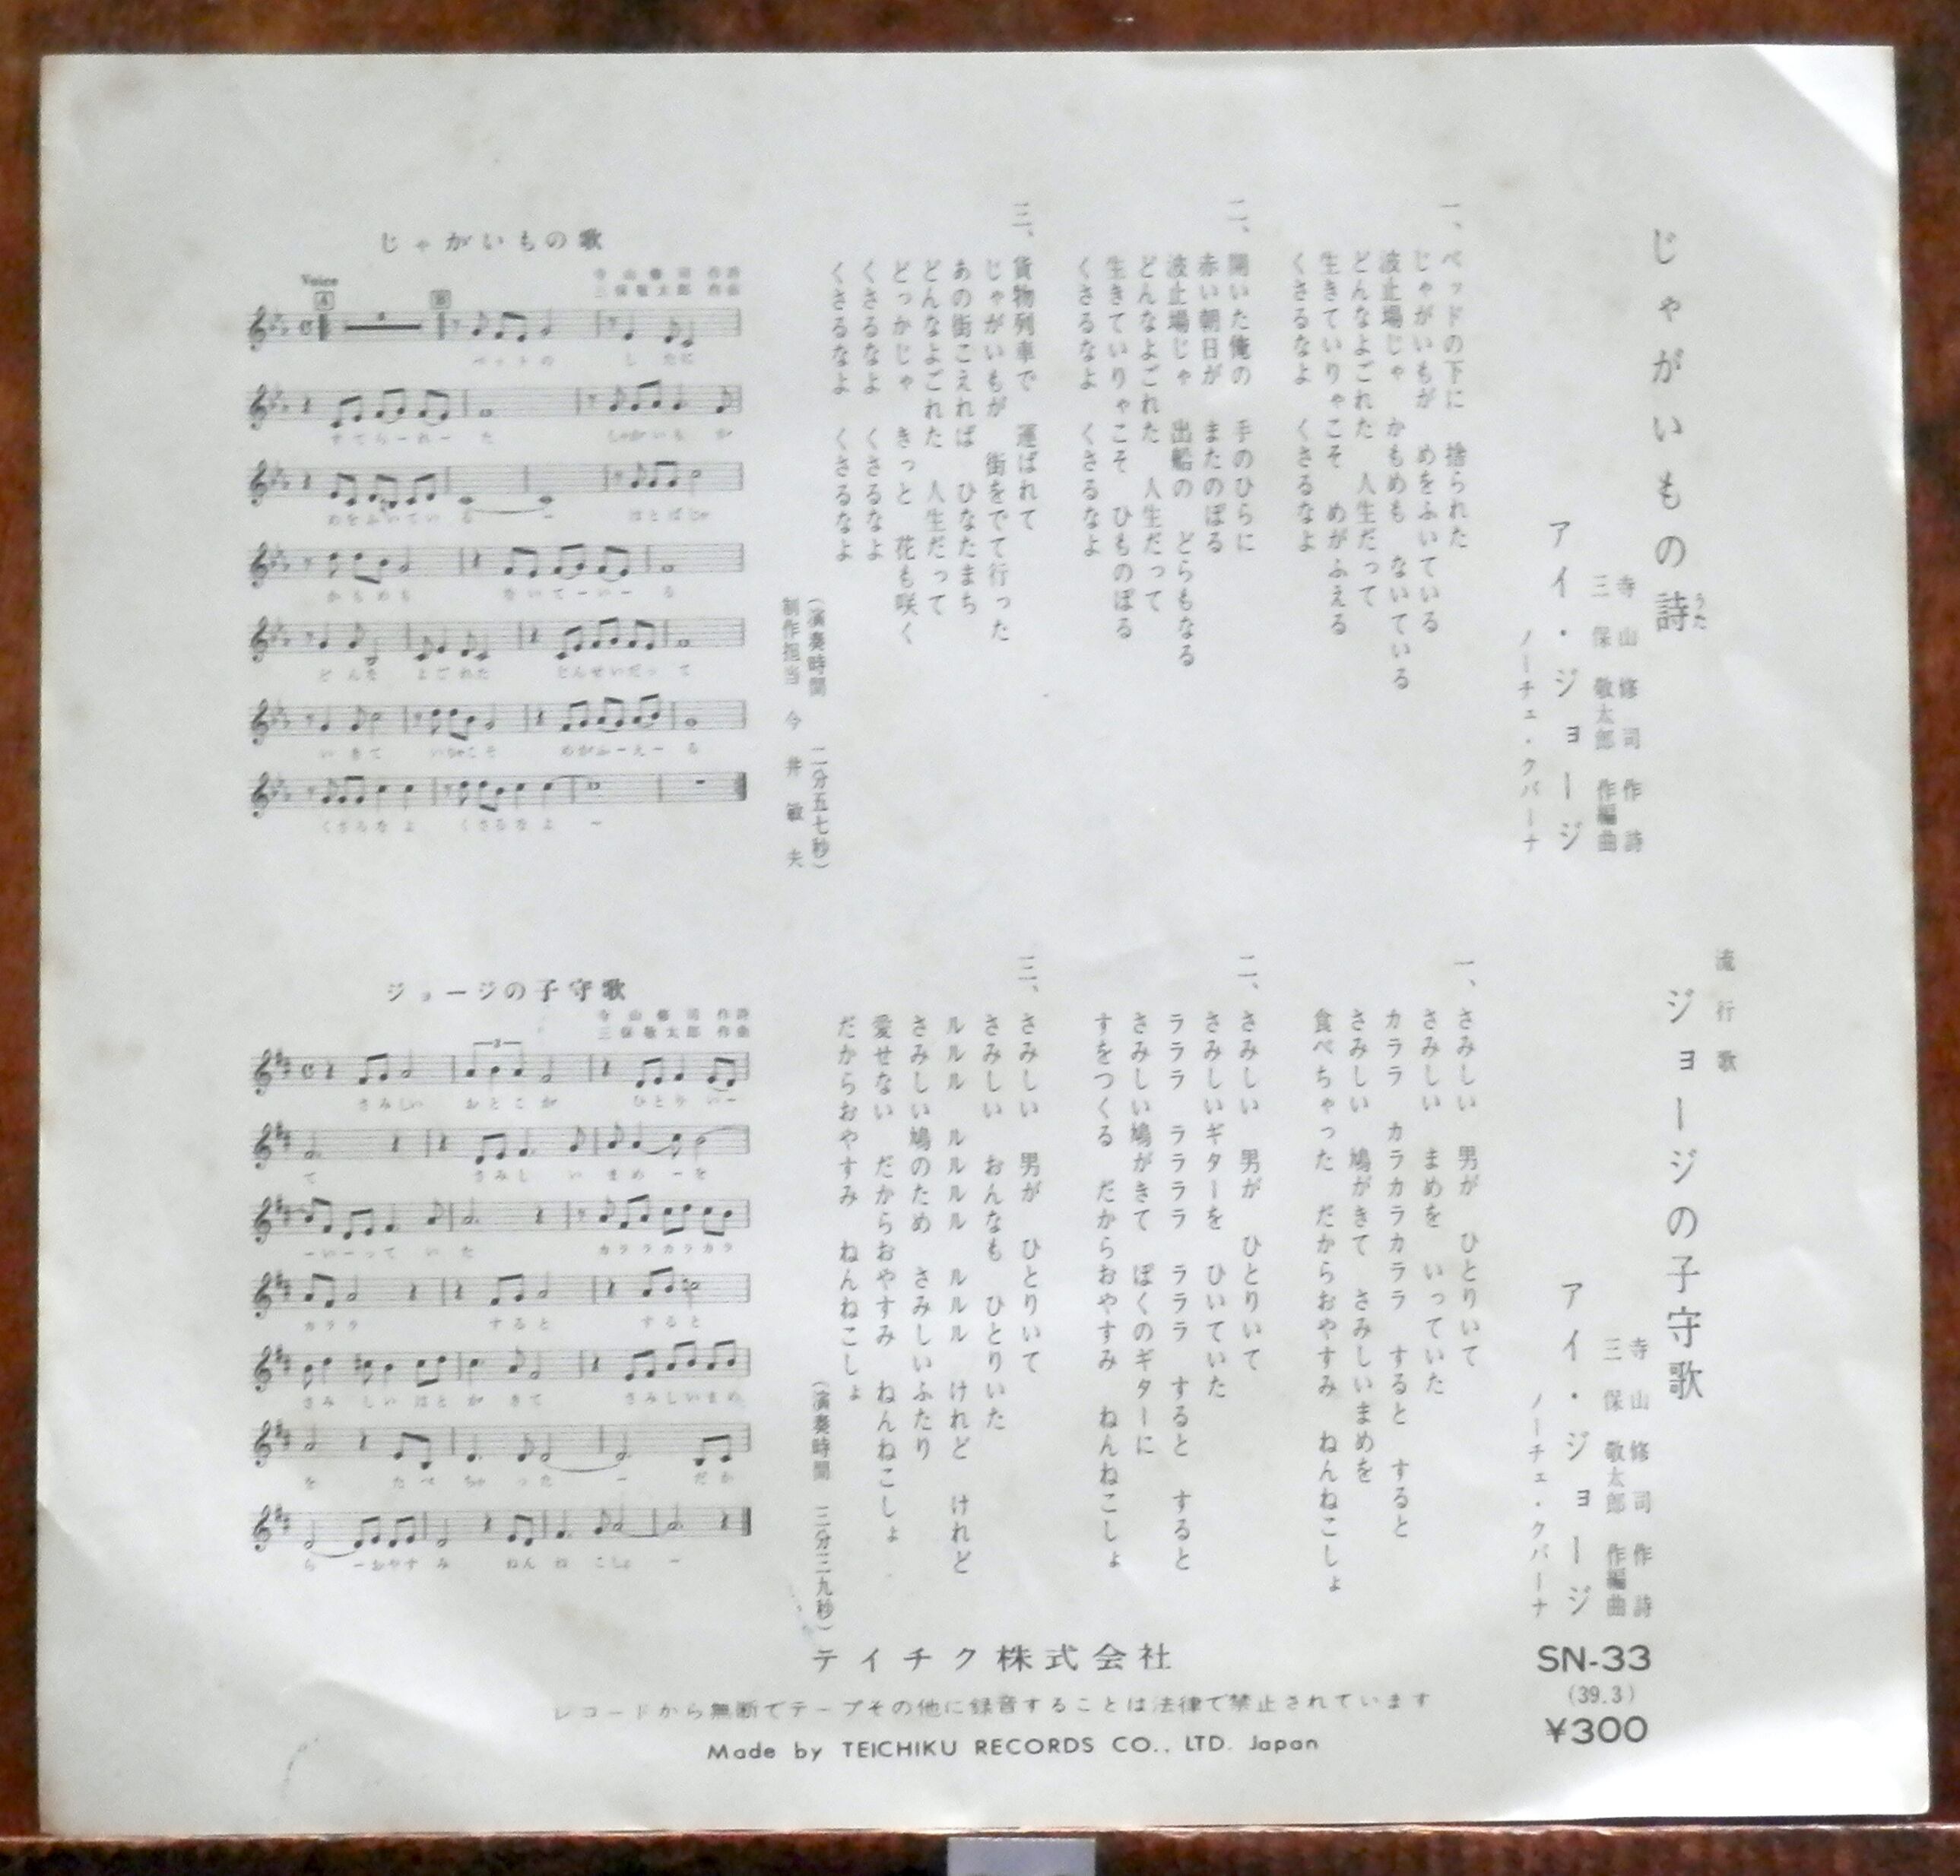 じゃがいもの詩
うた
寺山修司 作詩
三保敬太郎 作編曲
アイ・ジョージ
ノーチェ・クバーナ
一、ベッドの下に 捨られた
じゃがいもが めをふいている
波止場じゃ かもめも ないている
どんなよごれた 人生だって
生きていりゃこそ めがふえる
くさるなよ くさるなよ
二、開いた俺の 手のひらに
赤い朝日が またのぼる
波止場じゃ 出船の どらもなる
どんなよごれた 人生だって
生きていりゃこそ ひものぼる
くさるなよ くさるなよ
三、貨物列車で 運ばれて
じゃがいもが 街をでて行った
あの街こえれば ひなたまち
どんなよごれた 人生だって
どっかじゃ きっと 花も咲く
くさるなよ くさるなよ
くさるなよ くさるなよ
(演奏時間 二分五七秒)
制作担当 今井敏夫
じゃがいもの歌
寺山修司 作詩
三保敬太郎 作曲
Voice
A B
ベットの したに
すてらーれー た じゃがいも が
めをふいてい る ー はとばじゃ
かもめも ないてーいー る
どんな よごれた じんせいだっ て
いきて いりゃこそ めがふーえー る
くさるなよ くさるなよ ー
流行歌
ジョージの子守歌
寺山修司 作詩
三保敬太郎 作編曲
アイ・ジョージ
ノーチェ・クバーナ
一、さみしい 男が ひとりいて
さみしい まめを いっていた
カララ カラカラカララ すると すると
さみしい 鳩がきて さみしいまめを
食べちゃった だからおやすみ ねんねこしょ
二、さみしい 男が ひとりいて
さみしいギターを ひいていた
ラララ ララララ ラララ すると すると
さみしい鳩がきて ぼくのギターに
すをつくる だからおやすみ ねんねこしょ
三、さみしい 男が ひとりいて
さみしい おんなも ひとりいた
ルルル ルルルル ルルル けれど けれど
さみしい鳩のため さみしいふたり
愛せない だからおやすみ ねんねこしょ
だからおやすみ ねんねこしょ
(演奏時間 三分三九秒)
ジョージの子守歌
寺山修司 作詩
三保敬太郎 作曲
3
さみしい おとこが ひとり いー
て さみし い まめ ーを
ーいーって いた カララカラカラ
カララ すると すると
さみ しい はと が きて さみしいまめ
を たべ ちゃ った ー だか
ら ーおやす み ねん ね こしょ ー
テイチク株式会社
レコードから無断でテープその他に録音することは法律で禁止されています
Made by TEICHIKU RECORDS CO., LTD. Japan
SN-33
(39.3)
¥300